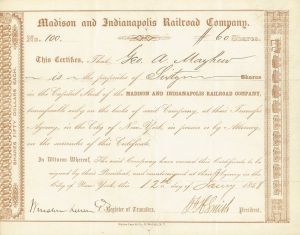 Madison and Indianapolis Railroad Company.
No. 100. # 60 Shares.
This Certifies, That Geo. A. Mayhew
is the proprietor of Sixty Shares
in the Capital Stock of the MADISON AND INDIANAPOLIS RAILROAD COMPANY,
transferable only on the books of said Company, at their Transfer
Agency, in the City of New York, in person or by Attorney,
on the surrender of this Certificate.
In Witness Whereof, The said Company have caused this Certificate to be
signed by their President, and countersigned at their Agency in the
City of New York this 12th day of Jany 1858
Register of Transfers. President.
SHARES FIFTY DOLLARS EACH.